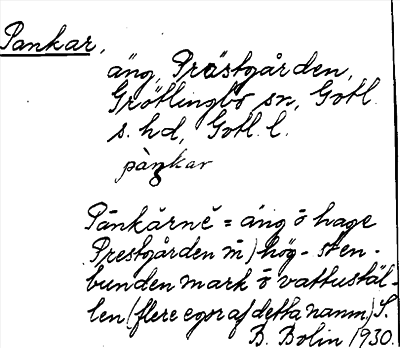 Pankar,
äng, Prästgården,
Grötlingbo sn, Gotl.
s. hd, Gotl. l.
pàŋkar
Pānkărnĕ = äng ō hage
Prestgården m̄) hög- sten-
bunden mark ō vattustäl-
len (flere egor af detta namn) S.
B. Bolin 1930.